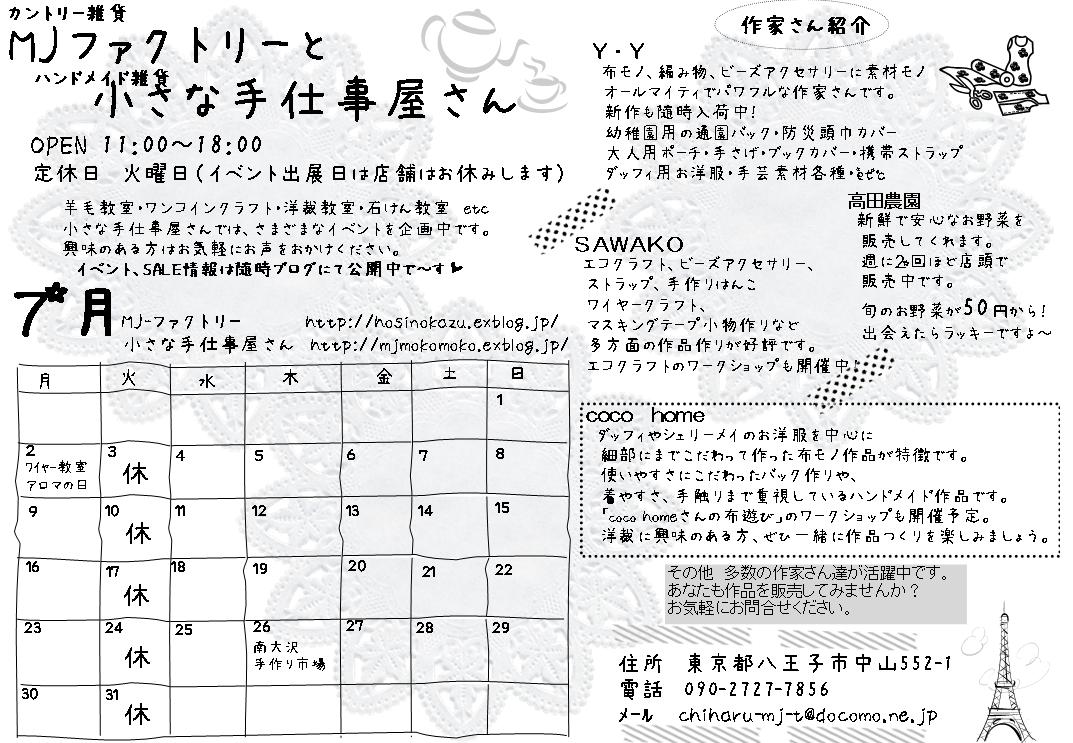 カントリー雑貨
MJファクトリーと
ハンドメイド雑貨
小さな手仕事屋さん
OPEN 11:00～18:00
定休日　火曜日(イベント出展日は店舗はお休みします)
羊毛教室・ワンコインクラフト・洋裁教室・石けん教室　etc
小さな手仕事屋さんでは、さまざまなイベントを企画中です。
興味のある方はお気軽にお声をおかけください。
イベント、SALE情報は随時ブログにて公開中で～す♥
7月
MJ-ファクトリー　http://hosinokazu.exblog.jp/
小さな手仕事屋さん　http://mjmokomoko.exblog.jp/
月 火 水 木 金 土 日
1
2 3 4 5 6 7 8
ワイヤー教室 休
アロマの日
9 10 11 12 13 14 15
休
16 17 18 19 20 21 22
休
23 24 25 26 27 28 29
休 南大沢
手作り市場
30 31
休
作家さん紹介
Y・Y
布モノ、編み物、ビーズアクセサリーに素材モノ
オールマイティでパワフルな作家さんです。
新作も随時入荷中!
幼稚園用の通園バック・防災頭巾カバー
大人用ポーチ・手さげ・ブックカバー・携帯ストラップ
ダッフィ用お洋服・手芸素材各種・etc
高田農園
新鮮で安心なお野菜を
販売してくれます。
週に2回ほど店頭で
販売中です。
旬のお野菜が50円から!
出会えたらラッキーですよ～
SAWAKO
エコクラフト、ビーズアクセサリー、
ストラップ、手作りはんこ
ワイヤークラフト、
マスキングテープ小物作りなど
多方面の作品作りが好評です。
エコクラフトのワークショップも開催中♪
coco home
ダッフィやシェリーメイのお洋服を中心に
細部にまでこだわって作った布モノ作品が特徴です。
使いやすさにこだわったバック作りや、
着やすさ、手触りまで重視しているハンドメイド作品です。
「coco homeさんの布遊び」のワークショップも開催予定。
洋裁に興味のある方、ぜひ一緒に作品つくりを楽しみましょう。
その他　多数の作家さん達が活躍中です。
あなたも作品を販売してみませんか？
お気軽にお問合せください。
住所　東京都八王子市中山552-1
電話　090-2727-7856
メール　chiharu-mj-t@docomo.ne.jp